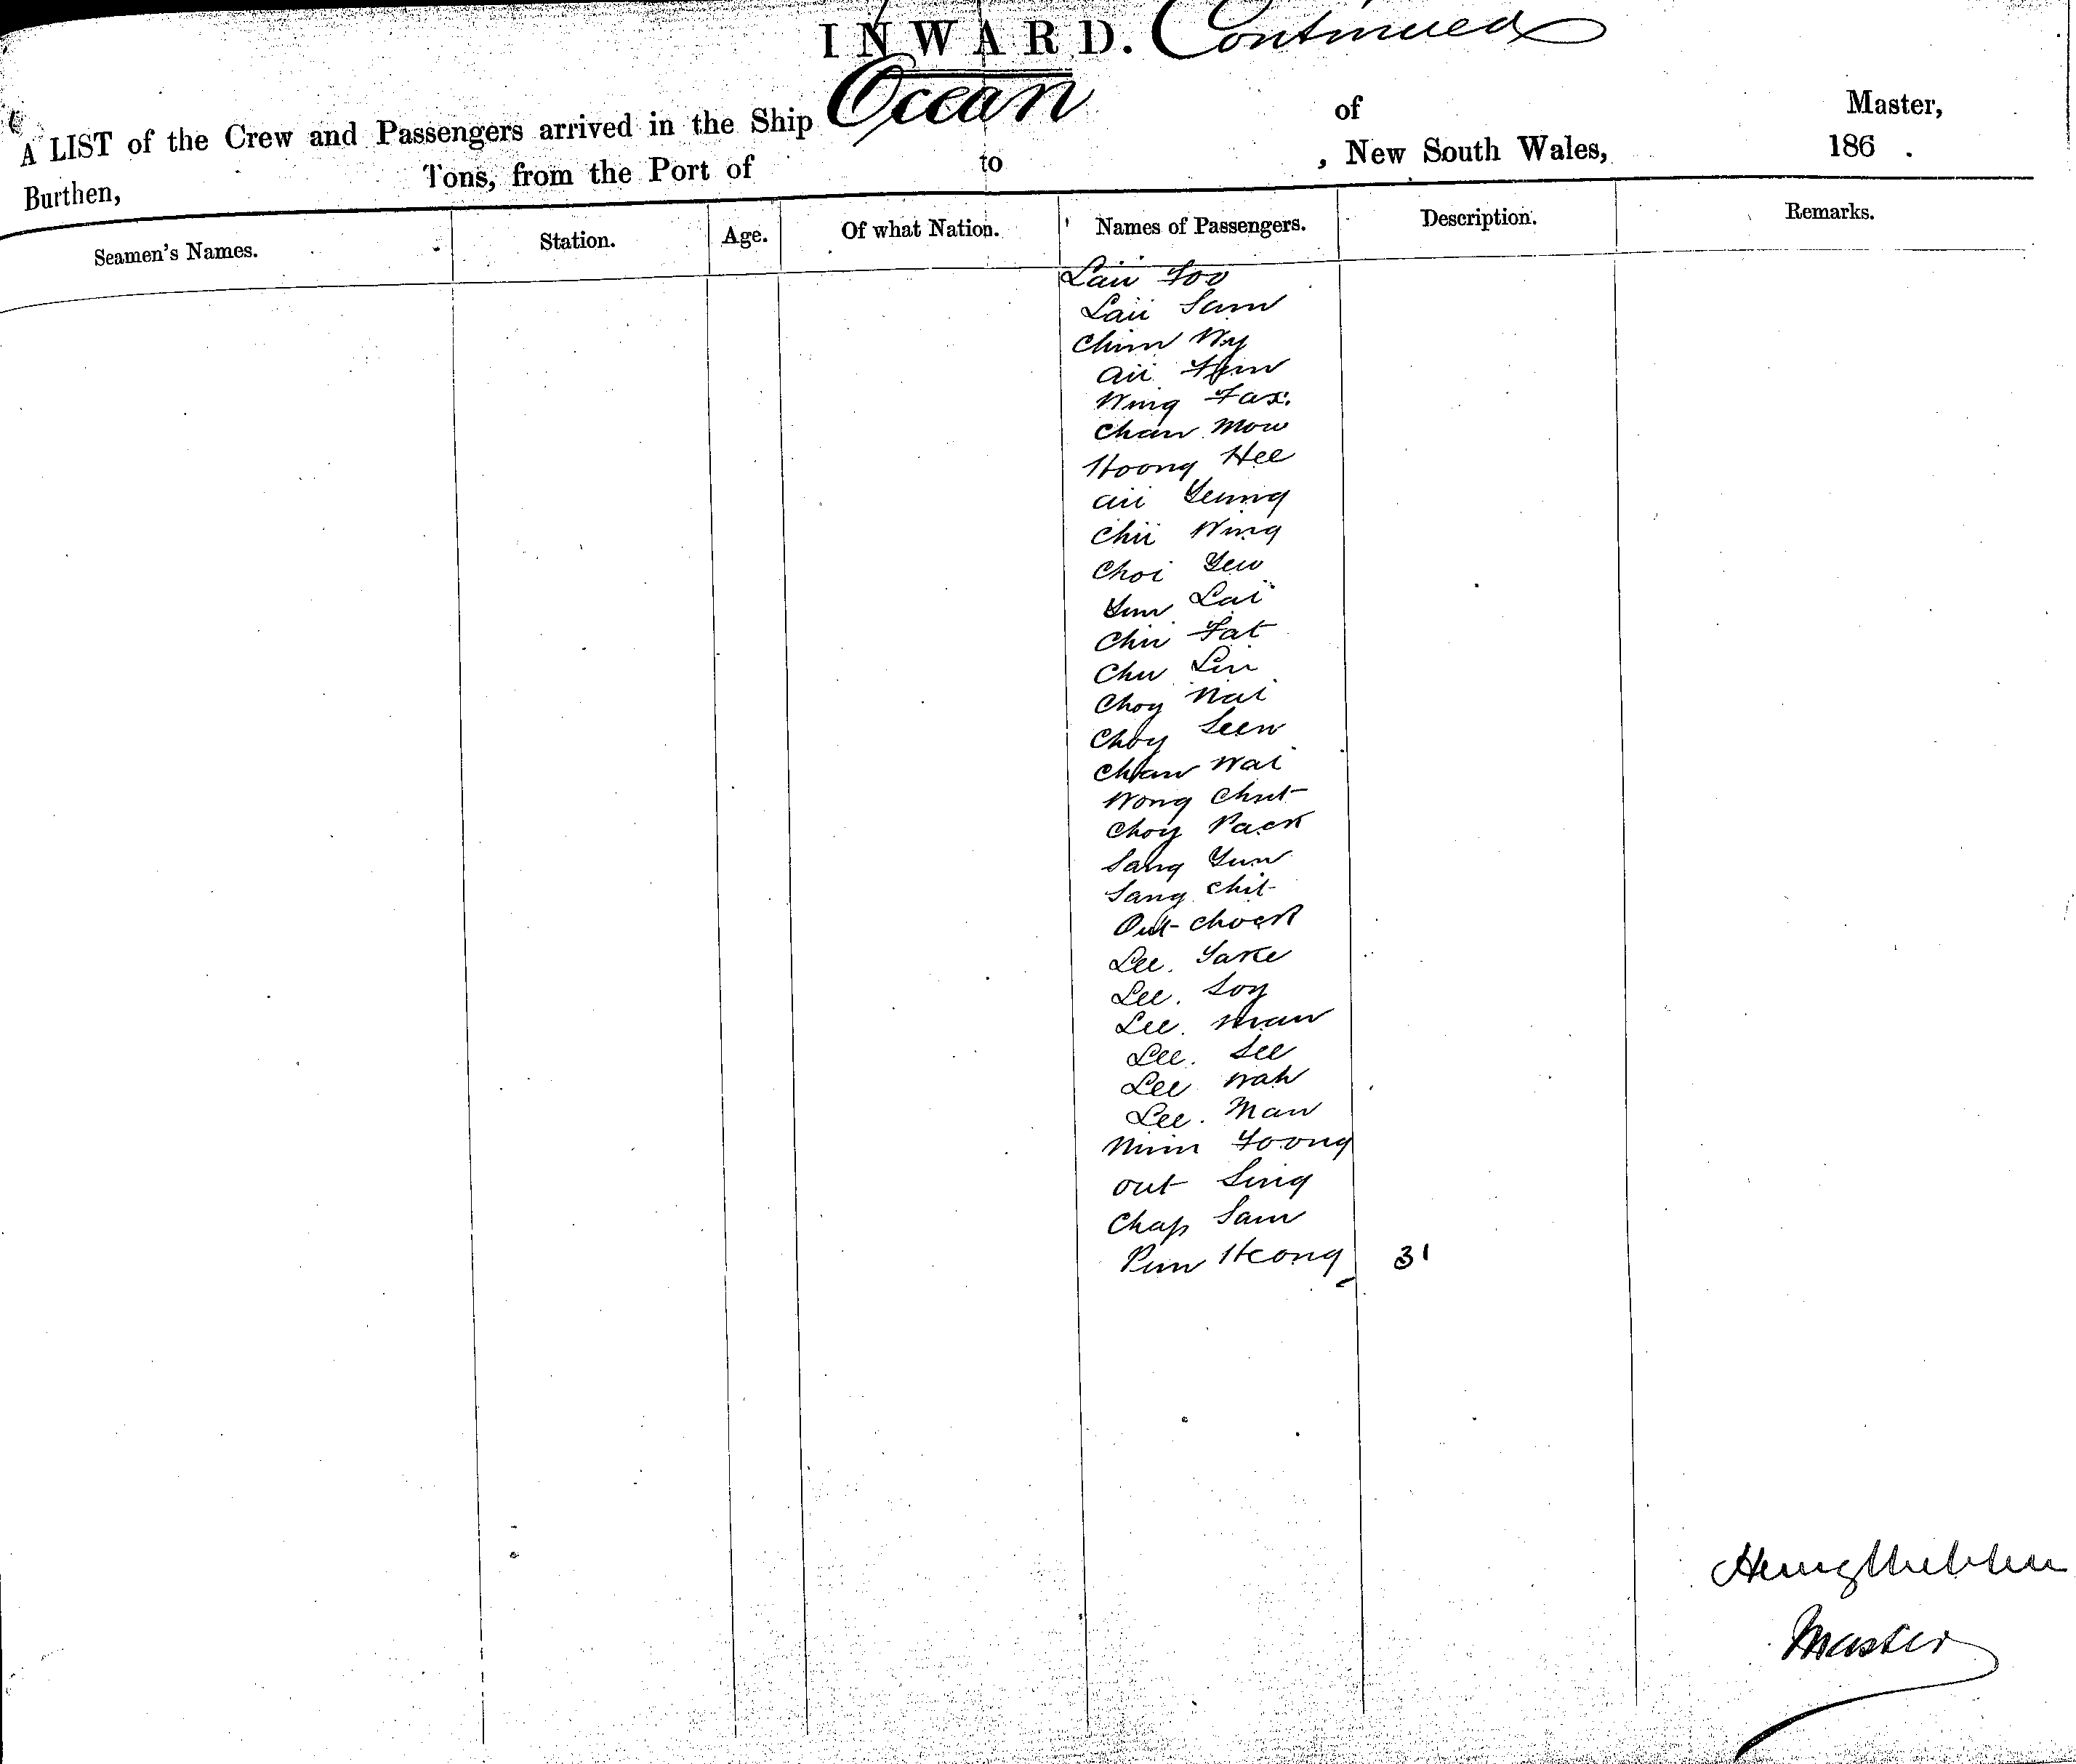 INWARD. Continued
A LIST of the Crew and Passengers arrived in the Ship Ocean of Master,
Burthen, Tons, from the Port of to , New South Wales, 186 .
Seamen's Names. Station. Age. Of what Nation. Names of Passengers. Description. Remarks.
Laii Foo
Laii Sam
Chim Wy
aii
Wing Fax.
Chan Mow
Hoong Hee
aii Yeung
Chii Wing
Choi Yew
Yun Lai
Chii Fat
Chu Lin
Choy Wai
Choy Seen
Chan Wai
Wong Chut
Choy Pack
Sang Yun
Sang Chit
Out Chock
Lee. Yake
Lee. Soy
Lee. Maan
Lee. See
Lee Wah
Lee. Man
Mim Foong
out Sing
Chap Sam
Pun Heong 31
Master